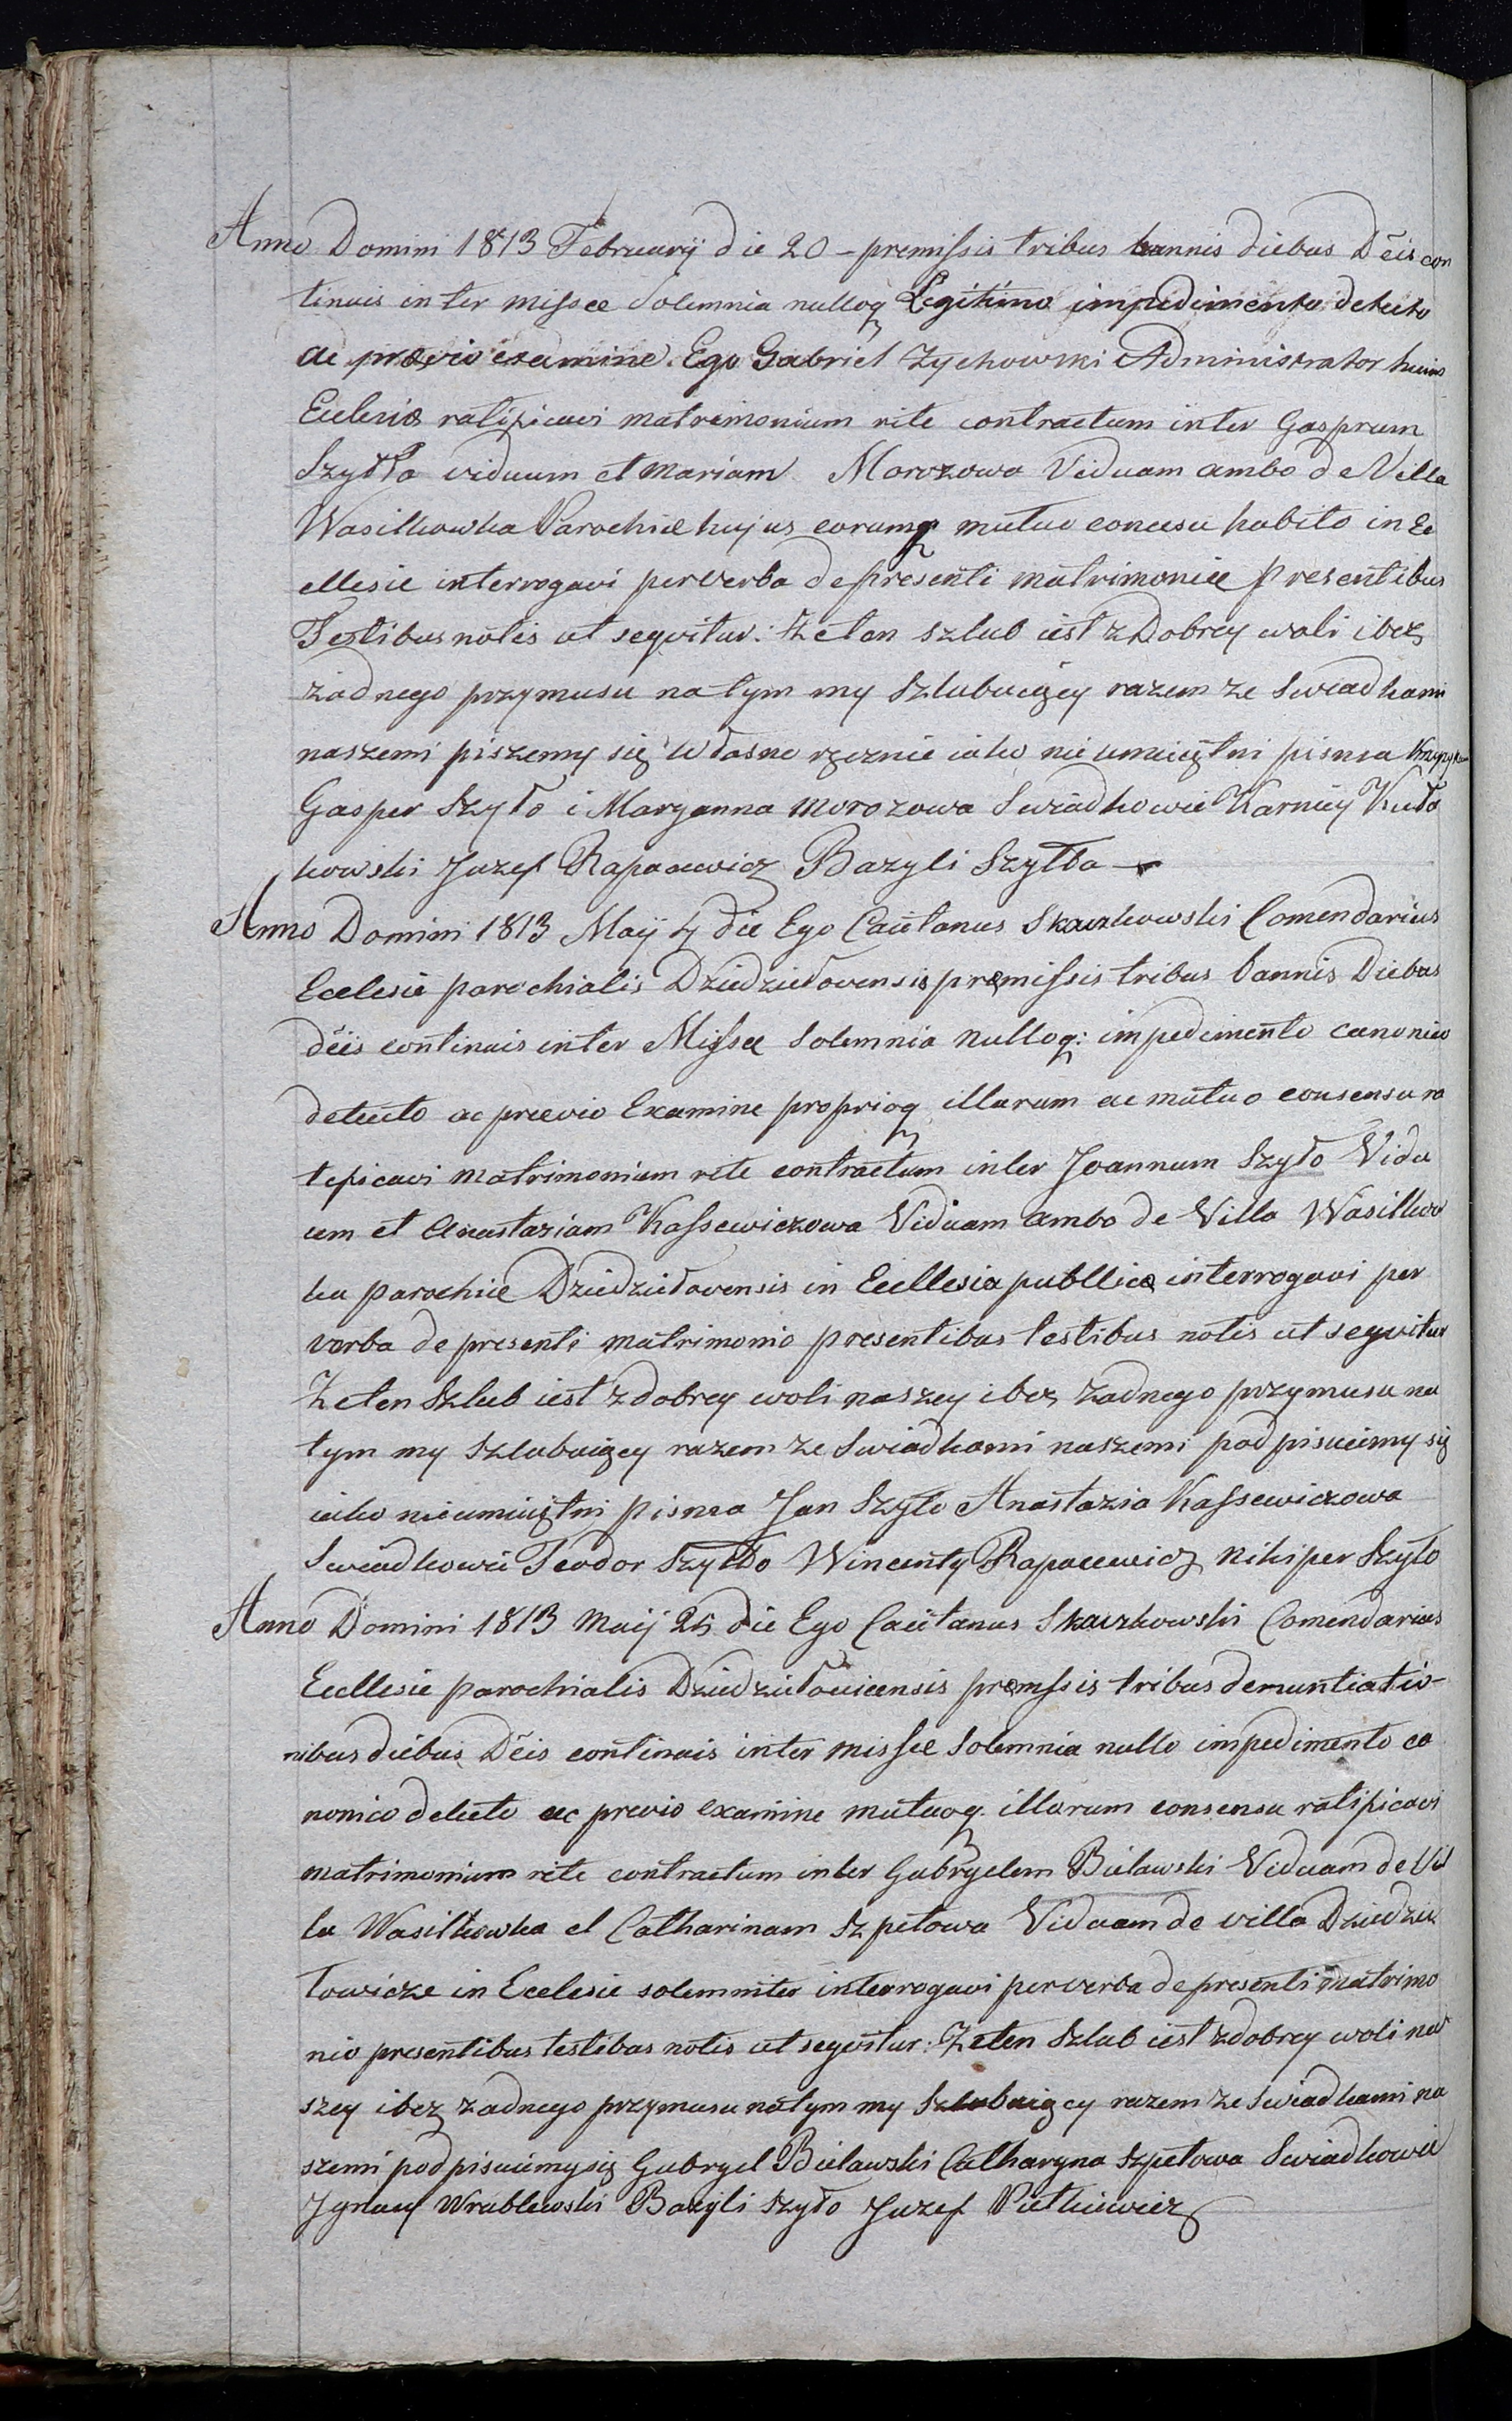 Anno Domini 1813 Februarij die 20 – premissis tribus bannis diebus Dēis con
tinuis inter missae Solemnia nulloq Legitimo impedimento detecto
ac praevio examine Ego Gabriel Zychowski Administrator huius
Eclesiae ratificavi matrimonium rite contractum inter Gasprum
Szydło viduum et Mariam Morozowa Viduam ambo de Villa
Wasilkowka Parochiae hujus eorumq mutuo concesu habito in Ec
cllesie interrogavi per verba de presenti matrimoniae presentibus
Testibus notis ut seqvitur: Że ten szlub iest z Dobrey woli i bez
żadnego przymusu na tym my Szlubuięcy razem ze Swiadkami
naszemi piszemy się własno ręcznie iako nie umieiętni pisma
Gasper Szyło i Maryanna Morozowa Swiadkowie Karniey Kuła
kowski Juzef Rapacewicz Bazyli Szyłło
Anno Domini 1813 Maij 4 die Ego Caietanus Skaczkowski Comendarius
Ecelesie parochialis Dziedziełovensis premissis tribus bannis Diebus
dēis continuis inter Missae Solemnia nulloq: impedimento canonico
detecto ac praevio Examine proprioq illarum ac mutuo consensu ra
tificavi matrimonium rite contractum inter Joannum Szyło Vidu
um et Anastaziam Kassewiczowa Viduam ambo de Villa Wasilkow
ka parochiae Dziedziełovensis in Ecllesia publlica interrogavi per
verba de presenti matrimonio presentibus testibus notis ut seqvitur
Że ten Szlub iest z dobrey woli naszey i bez żadnego przymusu na
tym my Szlubuięcy razem ze Swiadkami naszemi podpisuiemy się
iako nieumieiętni pisma Jan Szyło Anastazia Kassewiczowa
Swiadkowie Teodor Szyłło Wincenty Rapacewicz Nikiper Szyło
Anno Domini 1813 Maij 25 die Ego Caietanus Skaczkowski Comendarius
Ecllesie parochialis Dziedziełovicensis premssis tribus denuntiatio-
nibus diebus Dēis continuis inter missae Solemnia nullo impedimento ca
nonico detecto ac previo examine mutuoq. illorum consensu ratificavi
matrimonium rite contractum inter Gabryelem Bielawski Viduam de Vil
la Wasilkowka et Catharinam Szpetowa Viduam de villa Dziedzie
łowicze in Ecelesie solemniter interrogavi per verba de presenti matrimo
nio presentibus testibus notis ut seqvitur: Że ten Szlub iest z dobrey woli na
szey i bez żadnego przymusu na tym my Szlubuięcy razem ze swiadkami na
szemi podpisuiemy się Gabryel Bielawski Catharyna Szpetowa Swiadkowie
Jgnacy Wrublewski Bazyli Szyło Juzef Pietkiewicz